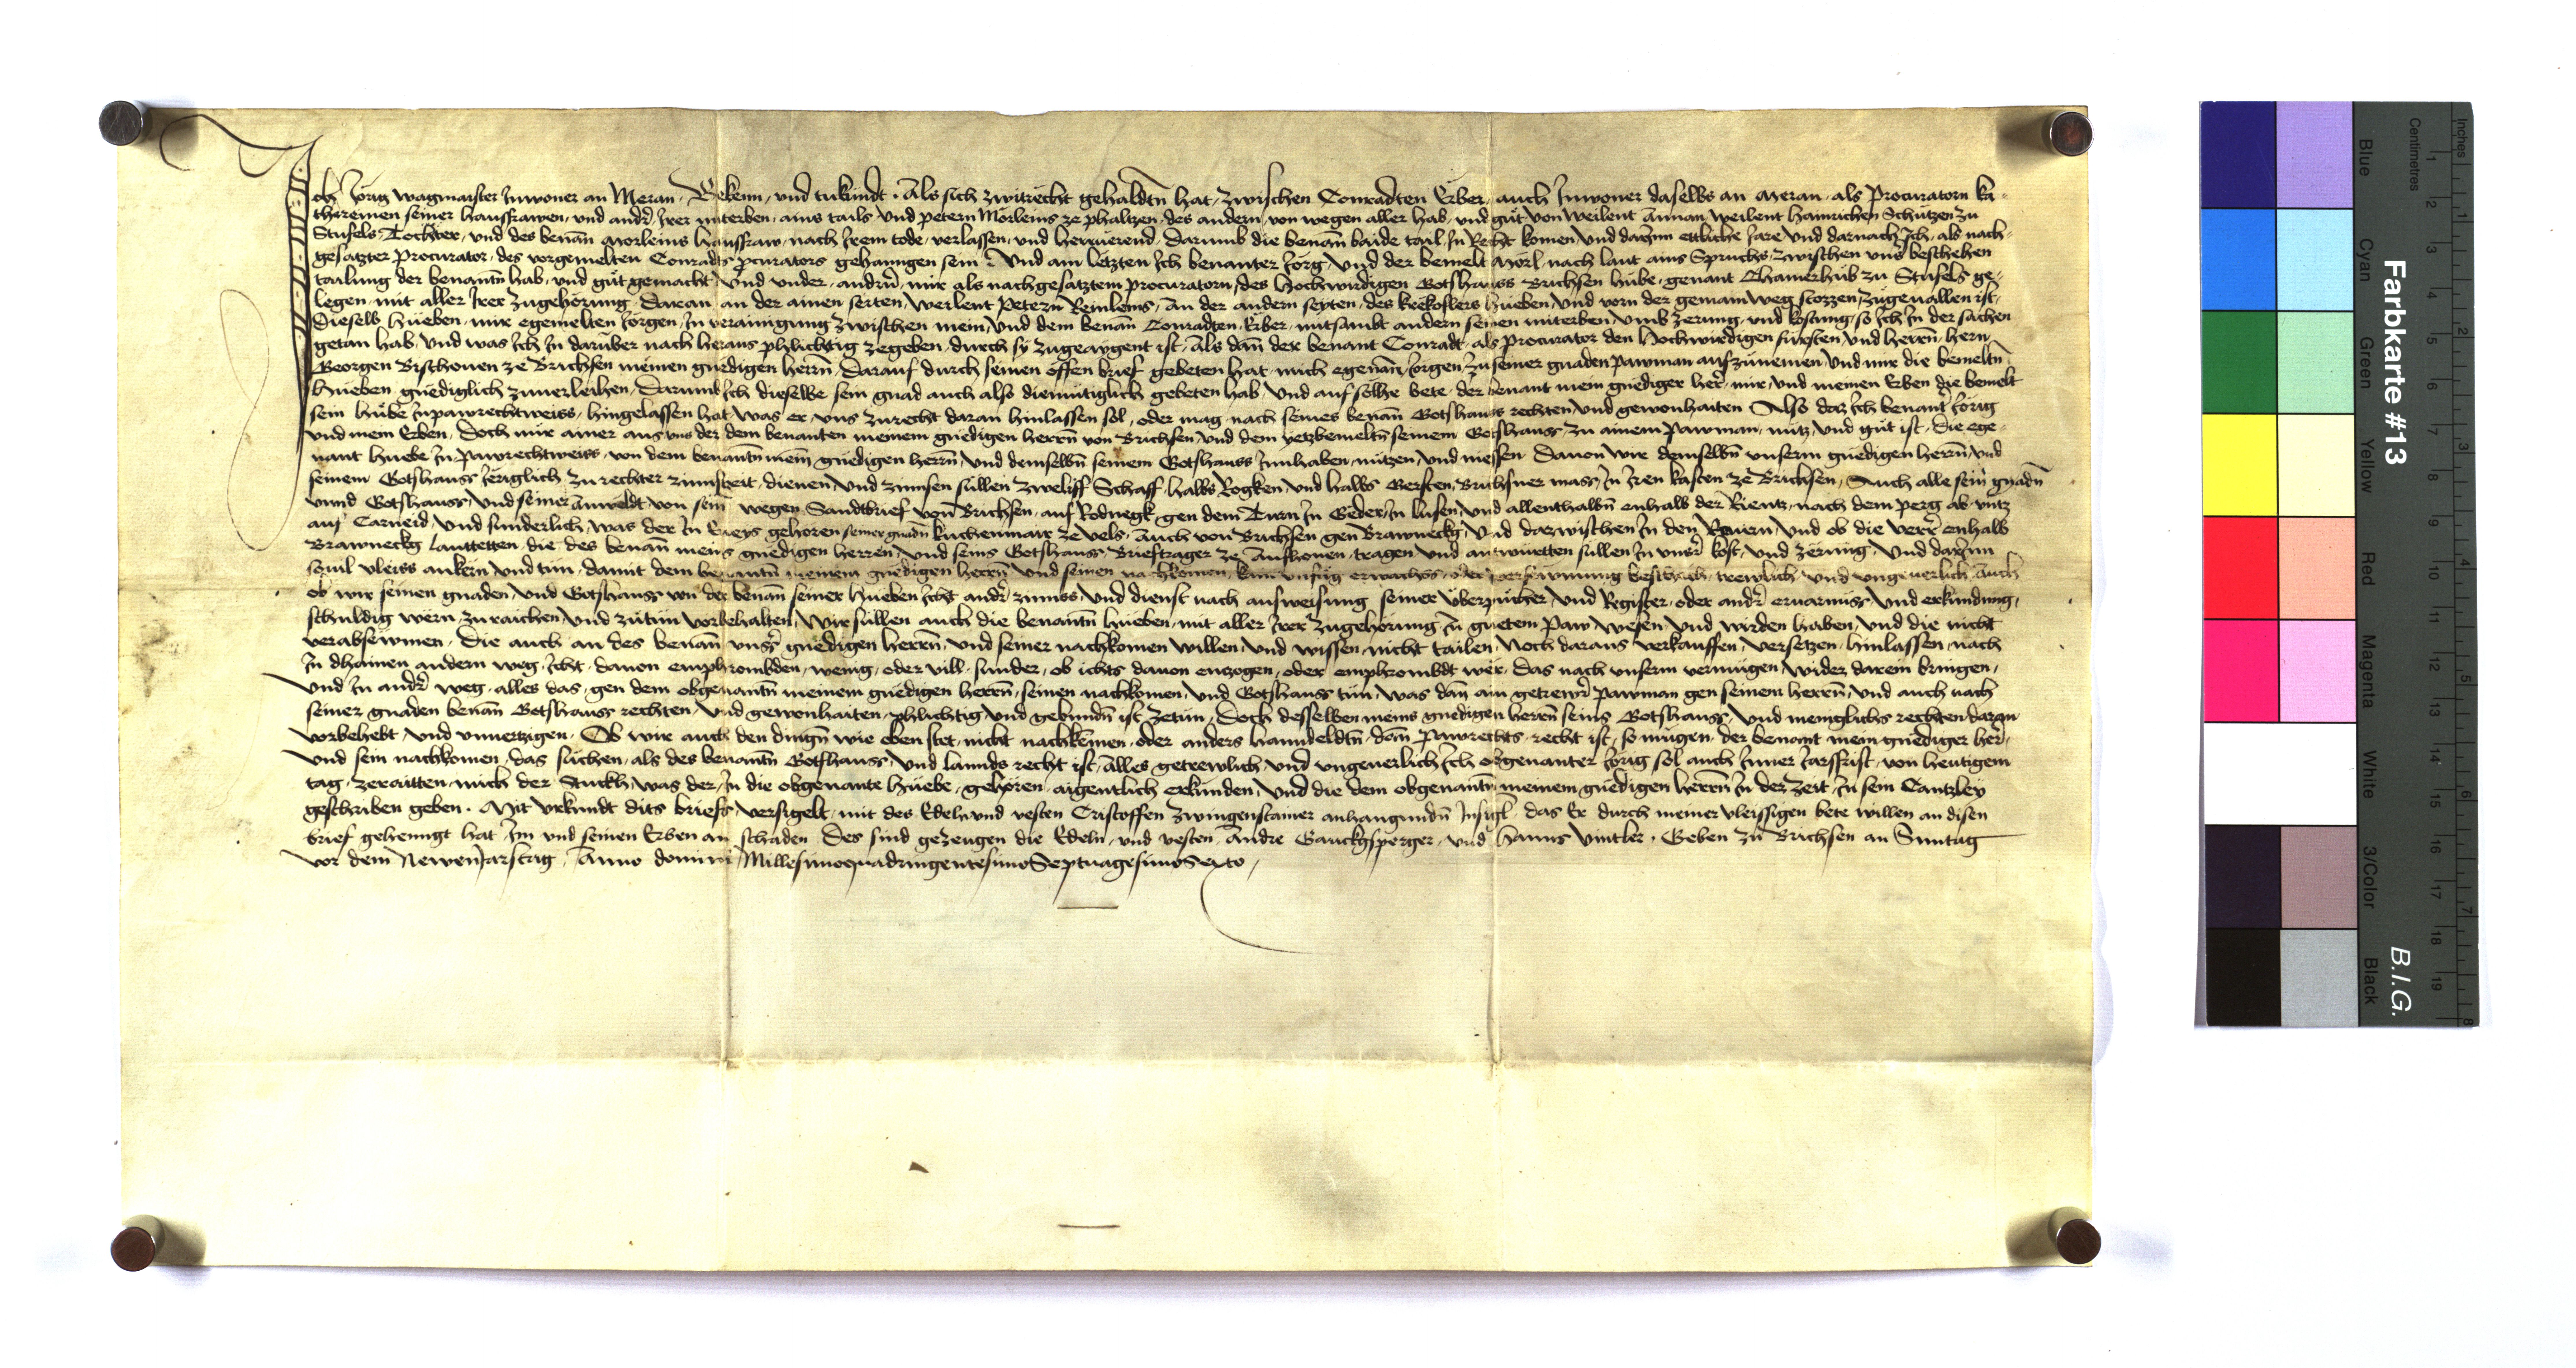 Ich Jörig Wagmaister Inwoner an Meran, Bekenn, und tu kundt. Als sich zwitrëcht gehaldtn̄ hat, zwischen Conradten Erber, auch Inwoner daselbs an Meran, als Procuratorn ka-
threinen seiner hausfrawen, und andr̄, Irer miterben, ains tails, Und petern Mörleins ze phaltzen, des andern, von wegen aller hab, und gůt von weilent Annan weilent hainrichen Schützen zu
Stufels, Tochter, und des benan̄ Mörleins hausfraw, nach Irem tode, verlassen, und herrüerend, Darumb die benan̄ baide tail, In Recht komen, und darInn ettliche Iare und darnach Ich, als nach-
gesatzter Procurator, des vorgemelten Conradts p̱curators gehanngen sein, Und am letzten Ich benanter Jörg, Und der bemelt Mörl, nach laut ains Spruchs, zwischen uns beschehen
taalung der benantn̄ hab, und gůt gemacht, Und under, andrn̄, mir als nachgesatztem procuratorn, des hochwirdigen Gotshawss Brichsen hůbe, genant Chamerhůb zu Stufels ge-
legen, mit aller Irer zugehörung, Daran an der ainen seiten, Weilent Petern Reinleins, An der andern seyten, des keekoflers hueben, Und vorn der gemain weg stozzen, zugeuallen ist,
Dieselb hueben, mir egemelten Jörgen, In verainigung zwischen mein, Und dem benan̄ Conradten, Erber, mitsambt andern seinen miterben, Umb zerung, und kostung, so Ich In der sachen
getan hab, Und was Ich In darüber nach heraus phlichtig zegeben, durch sy zugeaygent ist, Als dan̄ der benant Conradt, als procurator den hochwirdigen fürsten, und herrn̄, hern
Georgen Bischouen ze Brichsen meinen gnedigen herrn̄, Darauf durch seinen offen brief gebeten hat, mich egenan̄, Jörgen, zu seiner gnaden pawman aufzunemen, Und mir die bemeltn̄
hueben gnediglich zuuerleihen, Darumb Ich dieselbe sein gnad auch also diemütiglich gebeten hab, Und auf solhe bete, der benant mein gnediger her̄, mir, und meinen Erben die bemelt
sein hůbe In pawrechtweiss, hingelassen hat, Was er, uns zurecht daran hinlassen sol, oder mag, nach seines benan̄ Gotshawss rechten, und gewonhaiten, Also daz Ich benant̄ Jörig
und mein Erben, Doch nur ainer aus uns der dem benanten meinem gnedigen herrn̄ von Brichsen, Und dem yetzbemeltn̄ seinem Gotshawss, zu ainem pawman, nütz, und gůt ist, die ege-
nant huebe In pawrechtweiss, von dem benantn̄ mein̄ gnedigen herrn̄, Und demselbn̄ seinem Gotshawss Innhaben, nützen, Und niessen Dauon wir demselbn̄ unserm gnedigen herrn̄, Und
seinem Gotshawss Ieriglich zu rechter zinnszeit, dienen, und zinnsen süllen zweliff Schaff, halbs Rogken, und halbs Gersten, Brichsner mass, In Iren kasten ze Brichsen, Auch alle sein̄ gnadn̄
unnd Gotshawss, und seiner Anweldt von sein̄ wegen Sandtbrief von Brichsen, auf Rodnegk, gen dem Turn In Geder, In lusen, und allenthalbn̄ enhalb der Rientz, nach dem perg ab untz
auf Carneid, Und sunderlich, was der In Eueys gehoren seiner gnadn̄ kuchenmair ze vels, Auch von Brichsen gen Brawnegk, Und dazwischen In den Rauen, Und ob die verr̄ enhalb
Brawnegk lauttetten, die des benan̄ meins gnedigen herren, Und seins Gotshawss, Brieftrager ze Aufhouen, tragen, Und antwurtten süllen In unsr̄ kost, Und zerung, Und darInn
souil vleiss ankern und tun, damit dem benantn̄ meinem gnedigen herrn̄ Und seinen nachkomen, kain unfůg erwachss, oder versawmung beschech, trewlich, und ungeuerlich, Auch
ob wir seinen gnaden, Und Gotshawss von der benan̄ seiner hueben Icht andr̄ zinnss, Und dienst nach ausweisung seiner Urbarpücher, Und Register, oder andr̄ eruarnuss, Und erkündung,
schuldig wern, zu raichen, Und zůtůn vorbehalten, Wir süllen auch die benantn̄ hueben, mit aller Irer zugehörung In guetem Paw, wesen, Und wirden haben, Und die nicht
verabsewmen, Die auch an des benan̄ unsr̄ gnedigen herrn̄, Und seiner nachkomen willen, Und wissen, nicht tailen, Noch daraus verkauffen, versetzen, hinlassen, nach
In dhainen andern weg, Icht, dauon emphrömbden, wenig, oder vill, sunder, ob ichts dauon enzogen, oder emphrömbdt wër, das nach unserm vermügen, wider darein bringen,
Und In andr̄ weg, alles das, gen dem obgenantn̄ meinem gnedigen herrn̄, seinen nachkomen, Und Gotshawss tůn, Was dan̄ ain getrewr̄ pawman gen seinem herrn̄, Und auch nach
seiner gnaden benan̄ Gotshawss rechten, Und gewonhaiten, phlichtig und gebundn̄ ist, zetůn, Doch desselben meins gnedigen herrn̄ seins Gotshawss, Und meniglichs rechten daran
vorbehebt, Und unuertzigen, Ob wir auch den dingn̄ wie oben stet, nicht nachkëmen, oder anders hanndeldtn̄, dan̄ Pawrechts, recht ist, so mügen, der benant mein gnediger her̄,
Und sein nachkomen, das suchen, als des benantn̄ Gotshawss, Und lannds recht ist, Alles getrewlich, und ungeuerlich, Ich obgenanter Jörig sol auch Inner Iarssfrist, von heutigem
tag, zeraitten, mich der Stuckh, Was der, In die obgenante huebe, gehören, aigentlich erkunden, Und die dem obgenantn̄ meinem gnedigen herrn̄ In der zeit, In sein Cantzley
geschriben geben. Mit Urkundt dits briefs, versigelt, mit des Edeln und vesten Cristoffen Zwingenstainer anhangundn̄ Insigl, das Er durch meiner vleissigen bete willen an disen
brief gehenngt hat, Im und seinen Erben an schaden Des sind gezeugen die Edeln, und vesten, Andre Gauckhsperger, und hanns Vintler, Geben zu Brichsen an Sunntag
vor dem NewenJarstag, Anno domini MillesimoquadringentesimoSeptuagesimoSexto,
Farbkarte #13
B.I.G.
Centimetres
Inches
Blue
Cyan
Green
Yellow
Red
Magenta
White
3/Color
Black
1
2
3
4
5
6
7
8
9
10
11
12
13
14
15
16
17
18
19
1
2
3
4
5
6
7
8